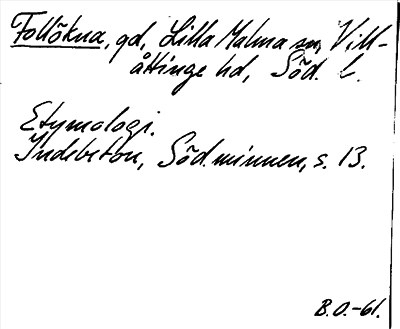 Follökna, gd, Lilla Malma sn, Vill-
åttinge hd, Söd. l.
Etymologi.
Indebetou, Söd.minnen, s. 13.
B.O.-61.